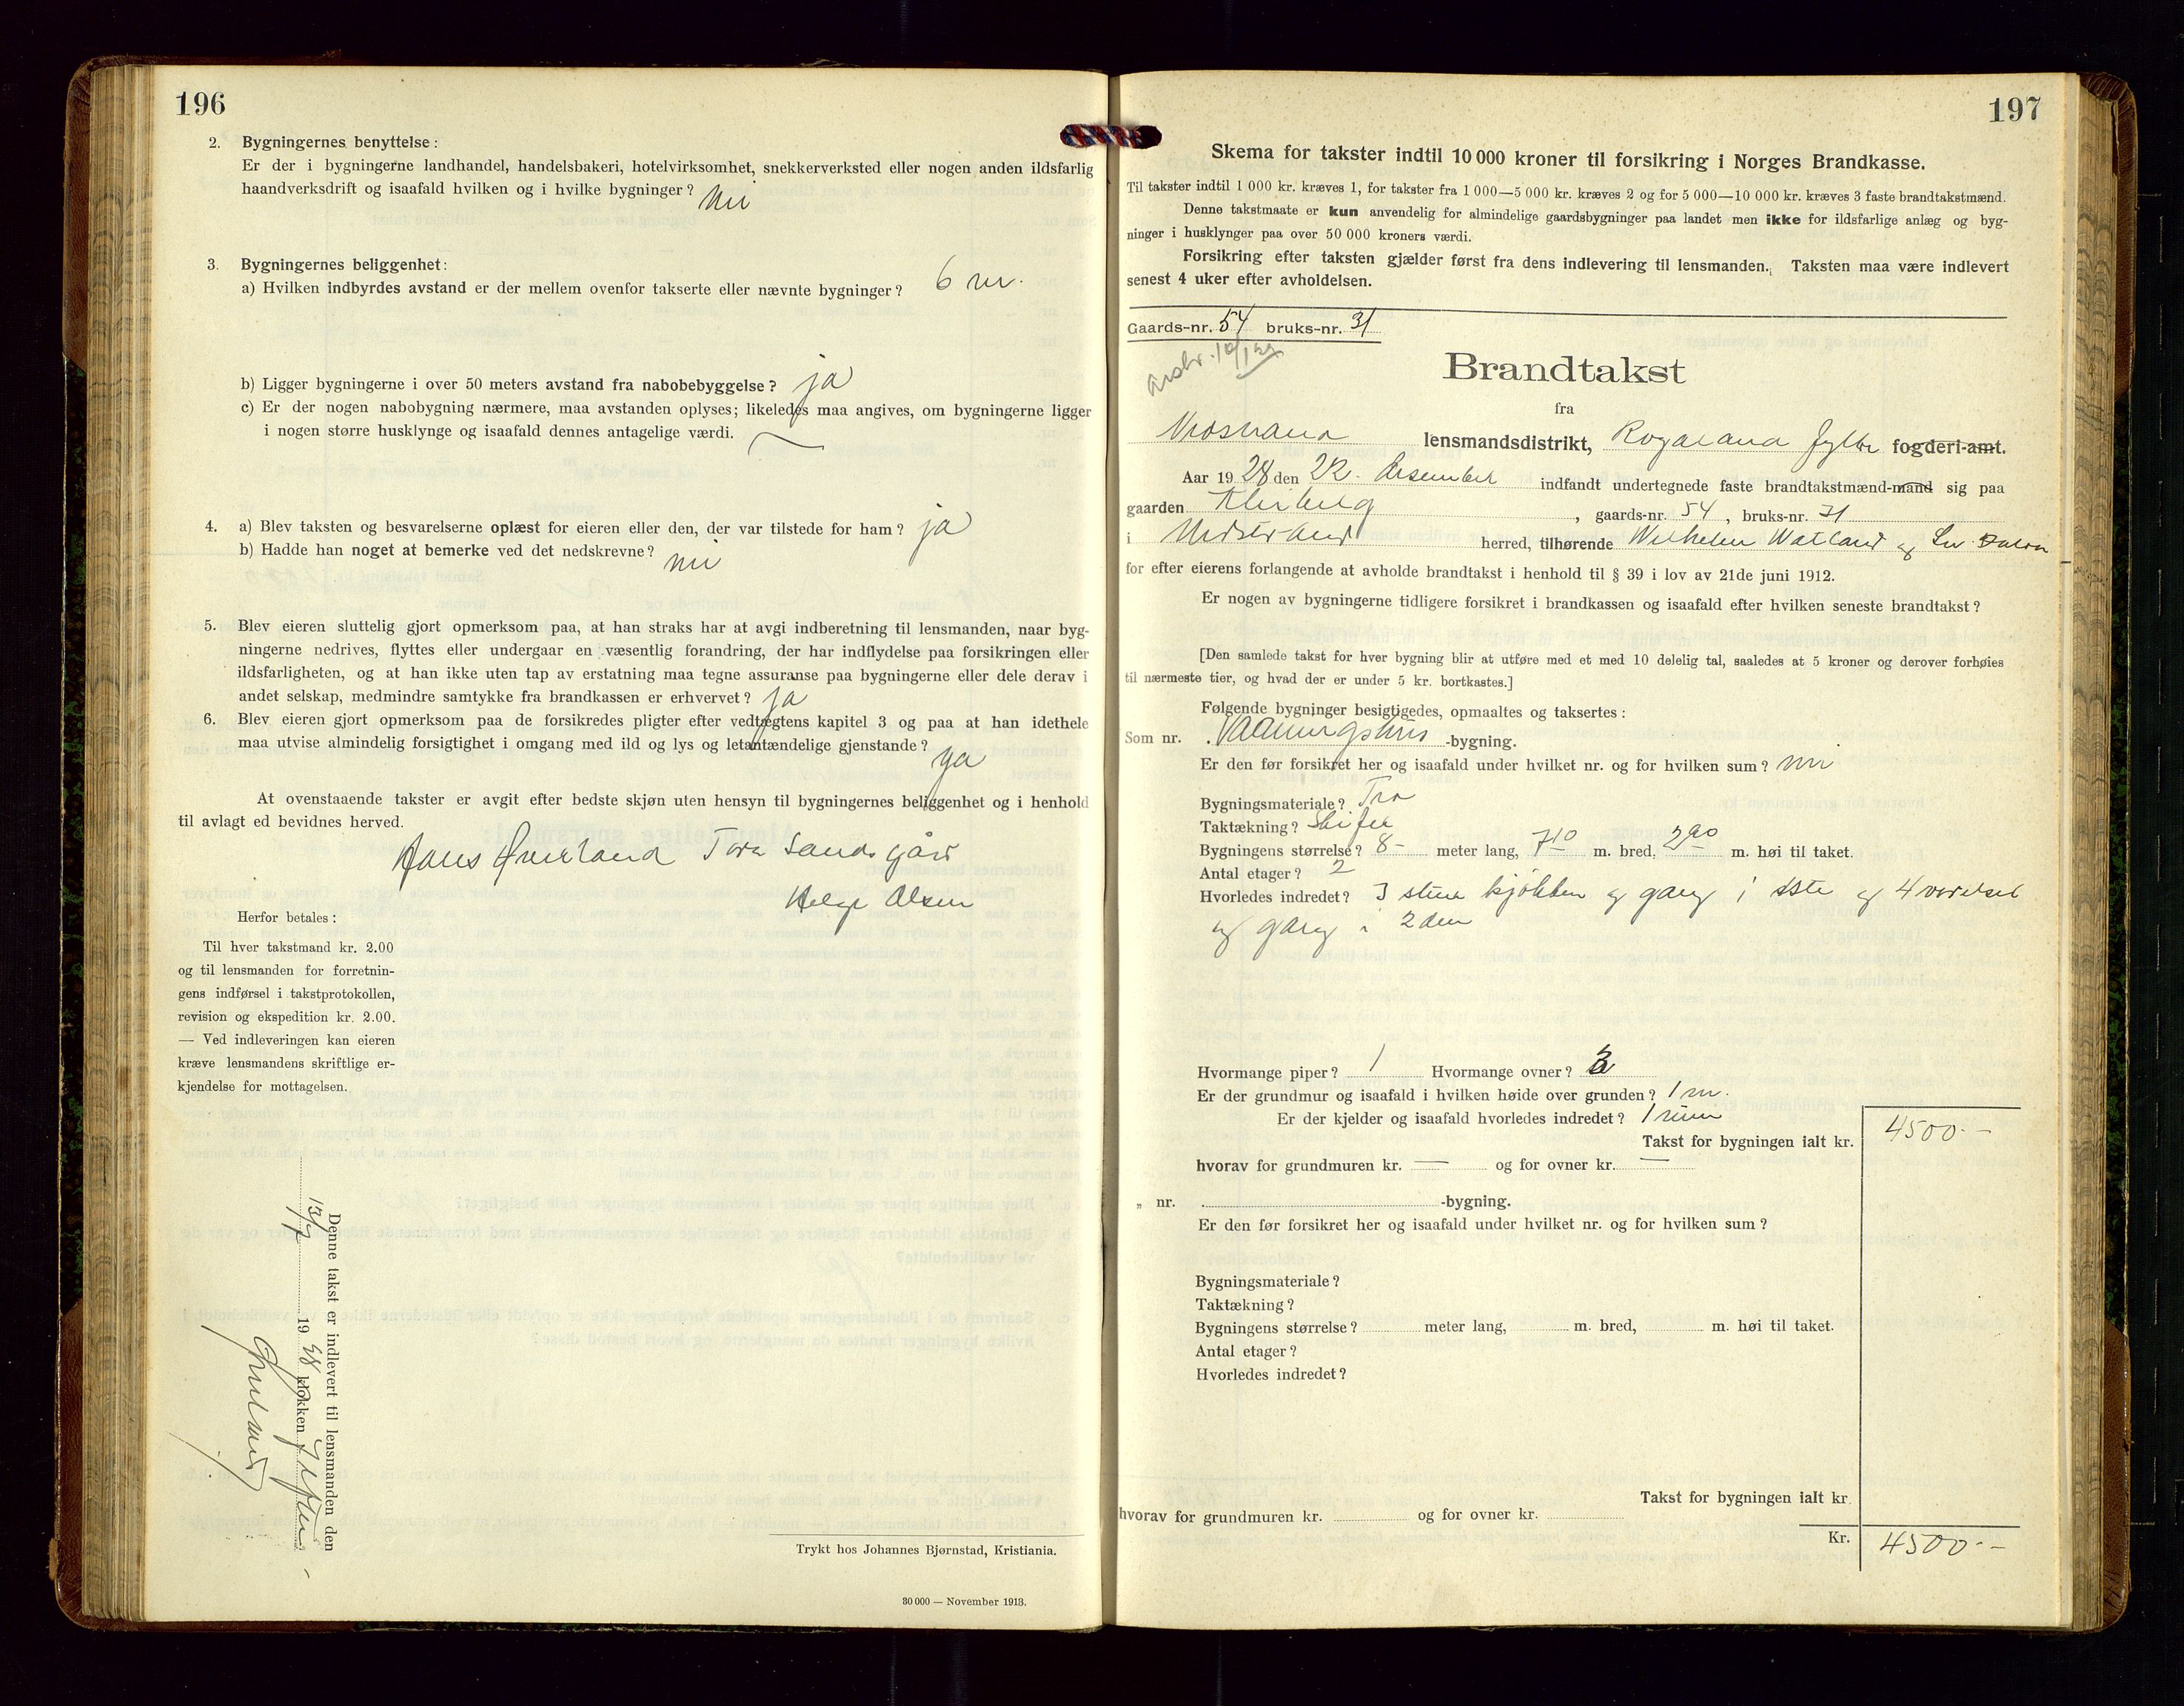 196
2. Bygningernes benyttelse:
Er der i bygningerne landhandel, handelsbakeri, hotelvirksomhet, snekkerverksted eller nogen anden ildsfarlig
haandverksdrift og isaafald hvilken og i hvilke bygninger? nei
3. Bygningernes beliggenhet:
a) Hvilken indbyrdes avstand er der mellem ovenfor takserte eller nævnte bygninger? 6 m.
b) Ligger bygningerne i over 50 meters avstand fra nabobebyggelse? ja
c) Er der nogen nabobygning nærmere, maa avstanden oplyses; likeledes maa angives, om bygningerne ligger
i nogen større husklynge og isaafald dennes antagelige værdi. —
4. a) Blev taksten og besvarelserne oplæst for eieren eller den, der var tilstede for ham? ja
b) Hadde han noget at bemerke ved det nedskrevne? nei
5. Blev eieren sluttelig gjort opmerksom paa, at han straks har at avgi indberetning til lensmanden, naar byg-
ningerne nedrives, flyttes eller undergaar en væsentlig forandring, der har indflydelse paa forsikringen eller
ildsfarligheten, og at han ikke uten tap av erstatning maa tegne assuranse paa bygningerne eller dele derav i
andet selskap, medmindre samtykke fra brandkassen er erhvervet? ja
6. Blev eieren gjort opmerksom paa de forsikredes pligter efter vedtægtens kapitel 3 og paa at han idethele
maa utvise almindelig forsigtighet i omgang med ild og lys og letantændelige gjenstande? ja
At ovenstaaende takster er avgit efter bedste skjøn uten hensyn til bygningernes beliggenhet og i henhold
til avlagt ed bevidnes herved.
Hans Øverland Tore Sandsgård
Helge Olsen
Herfor betales:
Til hver takstmand kr. 2.00
og til lensmanden for forretnin-
gens indførsel i takstprotokollen,
revision og ekspedition kr. 2.00.
— Ved indleveringen kan eieren
kræve lensmandens skriftlige er-
kjendelse for mottagelsen.
Denne takst er indlevert til lensmanden den
13/7 1928 klokken
Trykt hos Johannes Bjørnstad, Kristiania.
30 000 — November 1913.
197
Skema for takster indtil 10 000 kroner til forsikring i Norges Brandkasse.
Til takster indtil 1 000 kr. kræves 1, for takster fra 1 000—5 000 kr. kræves 2 og for 5 000—10 000 kr. kræves 3 faste brandtakstmænd.
Denne takstmaate er kun anvendelig for almindelige gaardsbygninger paa landet men ikke for ildsfarlige anlæg og byg-
ninger i husklynger paa over 50 000 kroners værdi.
Forsikring efter taksten gjælder først fra dens indlevering til lensmanden. Taksten maa være indlevert
senest 4 uker efter avholdelsen.
Gaards-nr. 54 bruks-nr. 31
Brandtakst
fra
lensmandsdistrikt, Rogaland Fylke fogderi-amt.
Aar 1928 den 22. desember indfandt undertegnede faste brandtakstmænd-mand sig paa
gaarden , gaards-nr. 54, bruks-nr. 31
i Nedstrand herred, tilhørende Wilhelm Watland og
for efter eierens forlangende at avholde brandtakst i henhold til § 39 i lov av 21de juni 1912.
Er nogen av bygningerne tidligere forsikret i brandkassen og isaafald efter hvilken seneste brandtakst?
[Den samlede takst for hver bygning blir at utføre med et med 10 delelig tal, saaledes at 5 kroner og derover forhøies
til nærmeste tier, og hvad der er under 5 kr. bortkastes.]
Følgende bygninger besigtigedes, opmaaltes og taksertes:
Som nr. Vaaningshus -bygning.
Er den før forsikret her og isaafald under hvilket nr. og for hvilken sum? nei
Bygningsmateriale? Træ
Taktækning? Skifer
Bygningens størrelse? 8- meter lang, 7 40 m. bred, 2 90 m. høi til taket.
Antal etager? 2
Hvorledes indredet? 3 stuer kjøkken og gang i 1ste og 4 værelser
og gang i 2den
Hvormange piper? 1 Hvormange ovner? 3
Er der grundmur og isaafald i hvilken høide over grunden? 1 m.
Er der kjelder og isaafald hvorledes indredet? 1 rum
Takst for bygningen ialt kr. 4500.-
hvorav for grundmuren kr. — og for ovner kr. —
„ nr. -bygning.
Er den før forsikret her og isaafald under hvilket nr. og for hvilken sum?
Bygningsmateriale?
Taktækning?
Bygningens størrelse? meter lang, m. bred, m. høi til taket.
Antal etager?
Hvorledes indredet?
Takst for bygningen ialt kr.
hvorav for grundmuren kr. og for ovner kr.
Kr. 4500.-